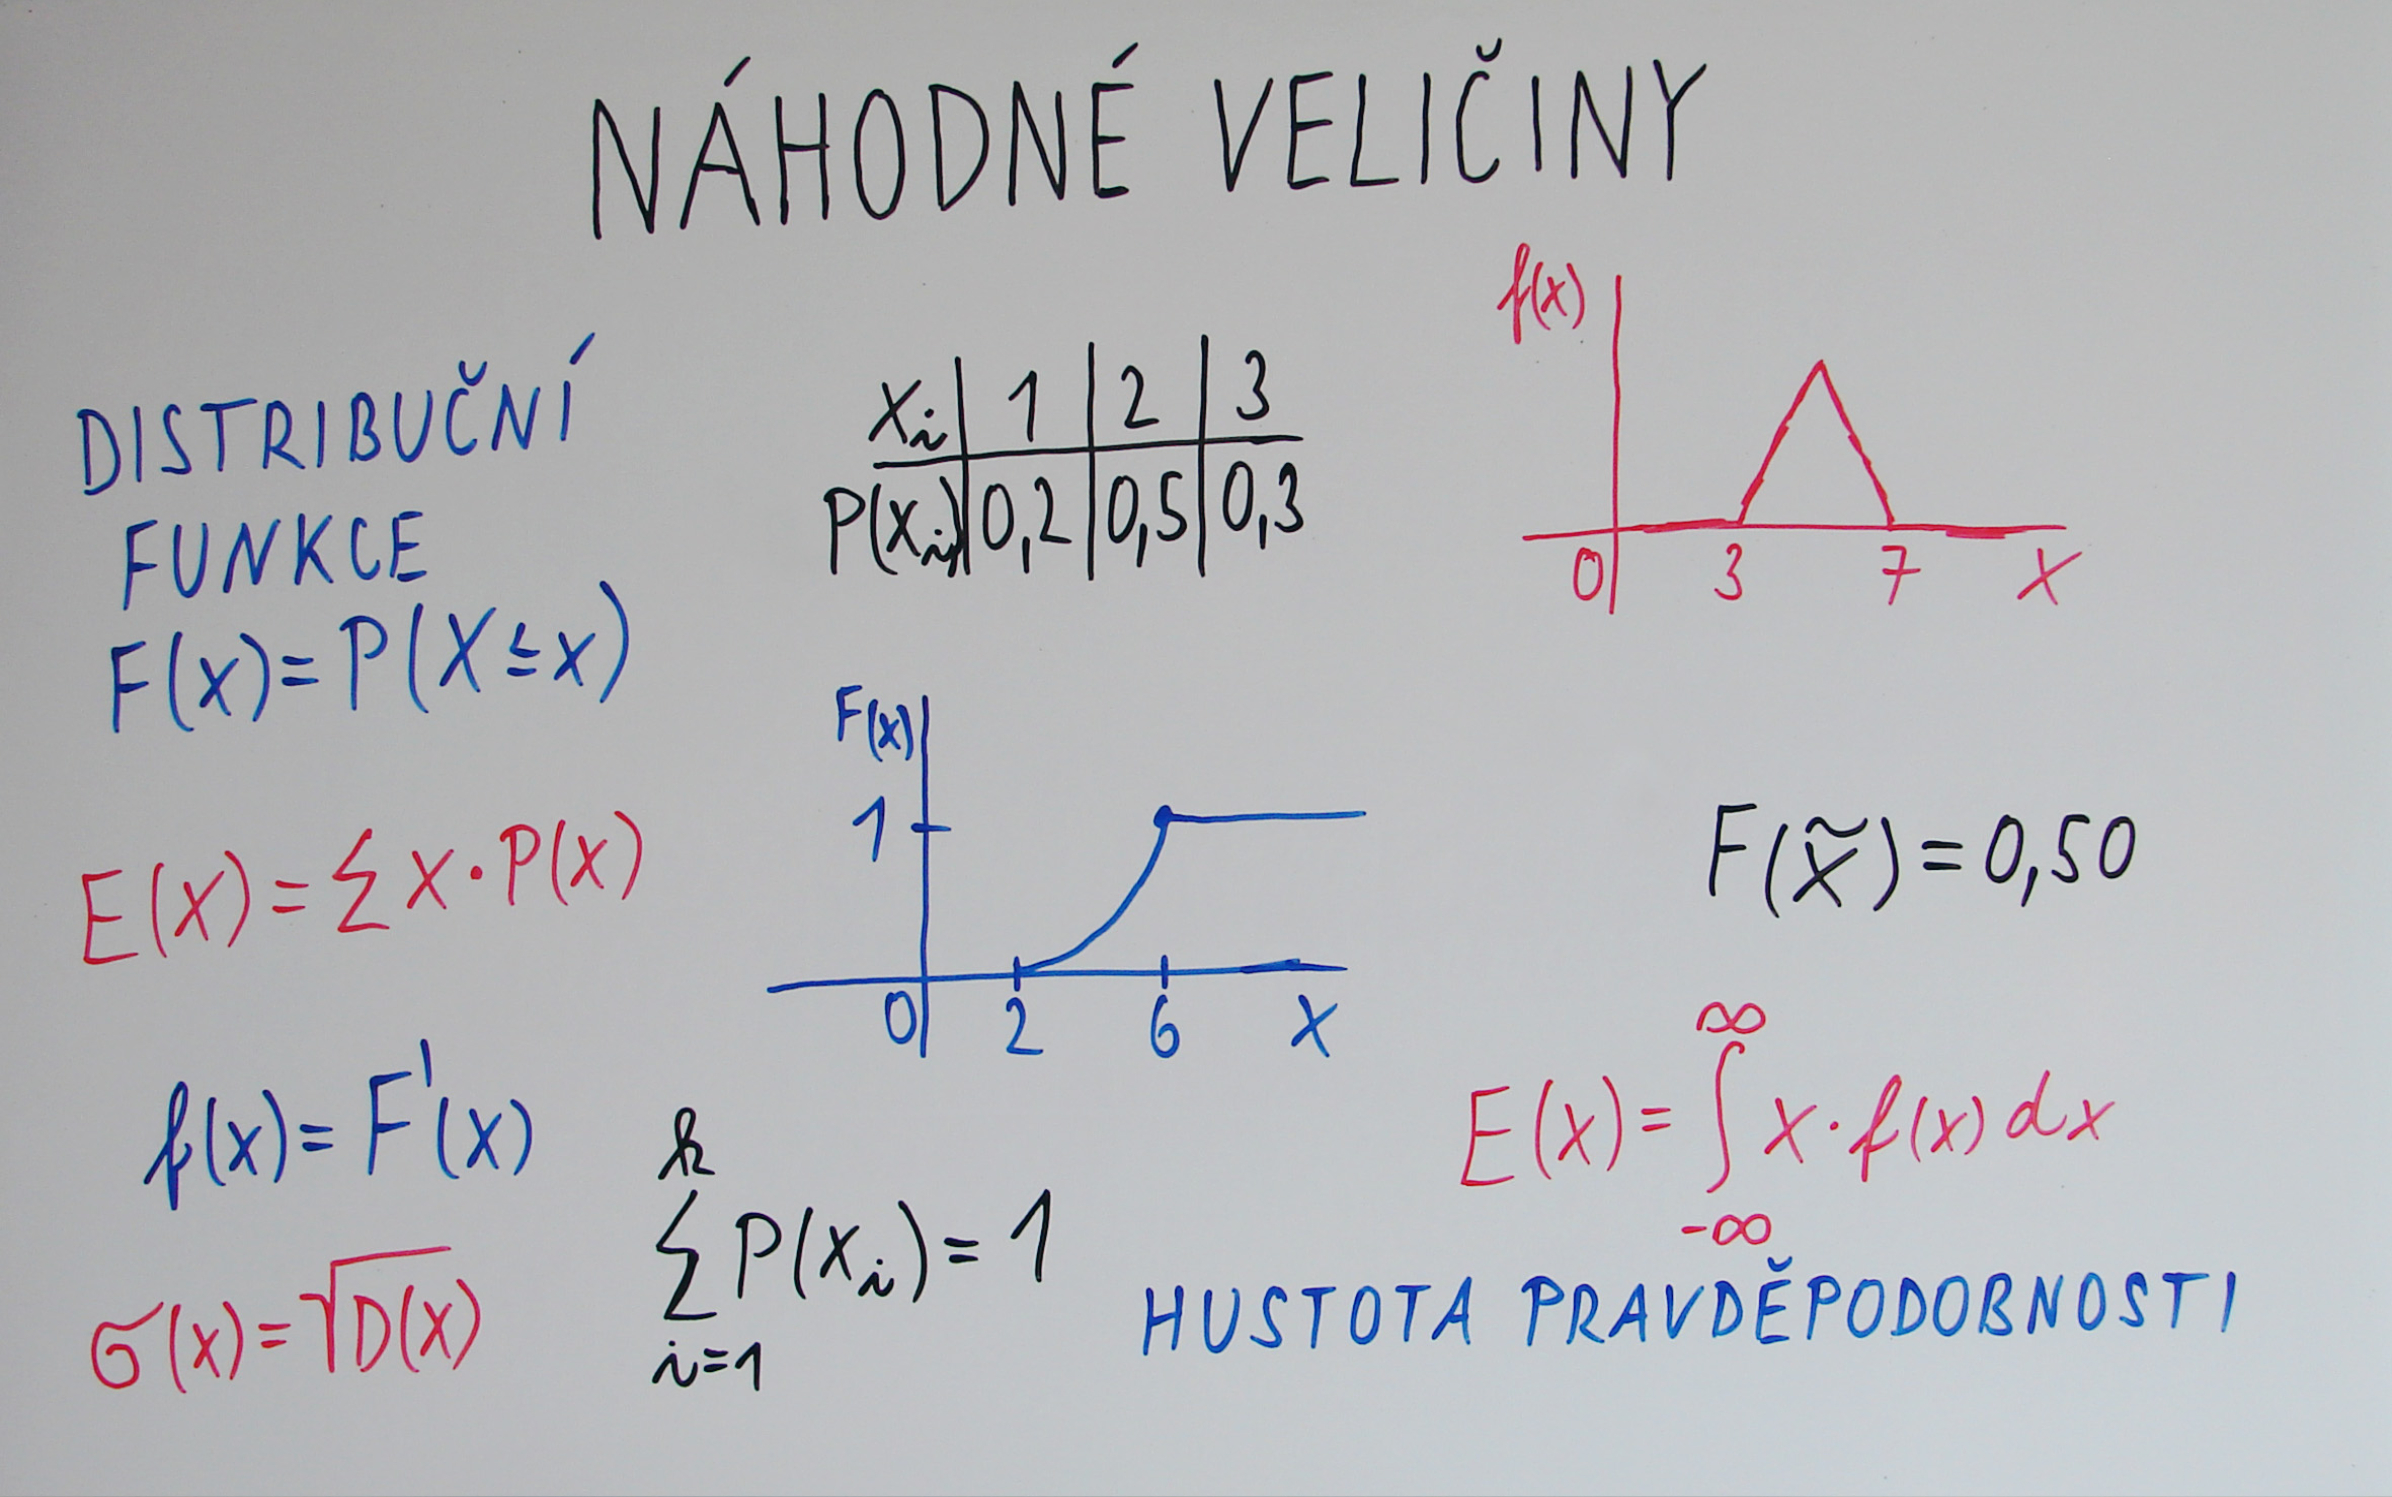 NÁHODNÉ VELIČINY
DISTRIBUČNÍ
FUNKCE
F(x)=P(X≤x)
xᵢ 1 2 3
P(xᵢ) 0,2 0,5 0,3
f(x)
0 3 7 X
F(x)
1
0 2 6 X
E(X)=∑x·P(x)
F(x̃)=0,50
f(x)=F'(x)
k
∑P(xᵢ)=1
i=1
∞
E(X)=∫x·f(x)dx
-∞
σ(X)=√D(X)
HUSTOTA PRAVDĚPODOBNOSTI